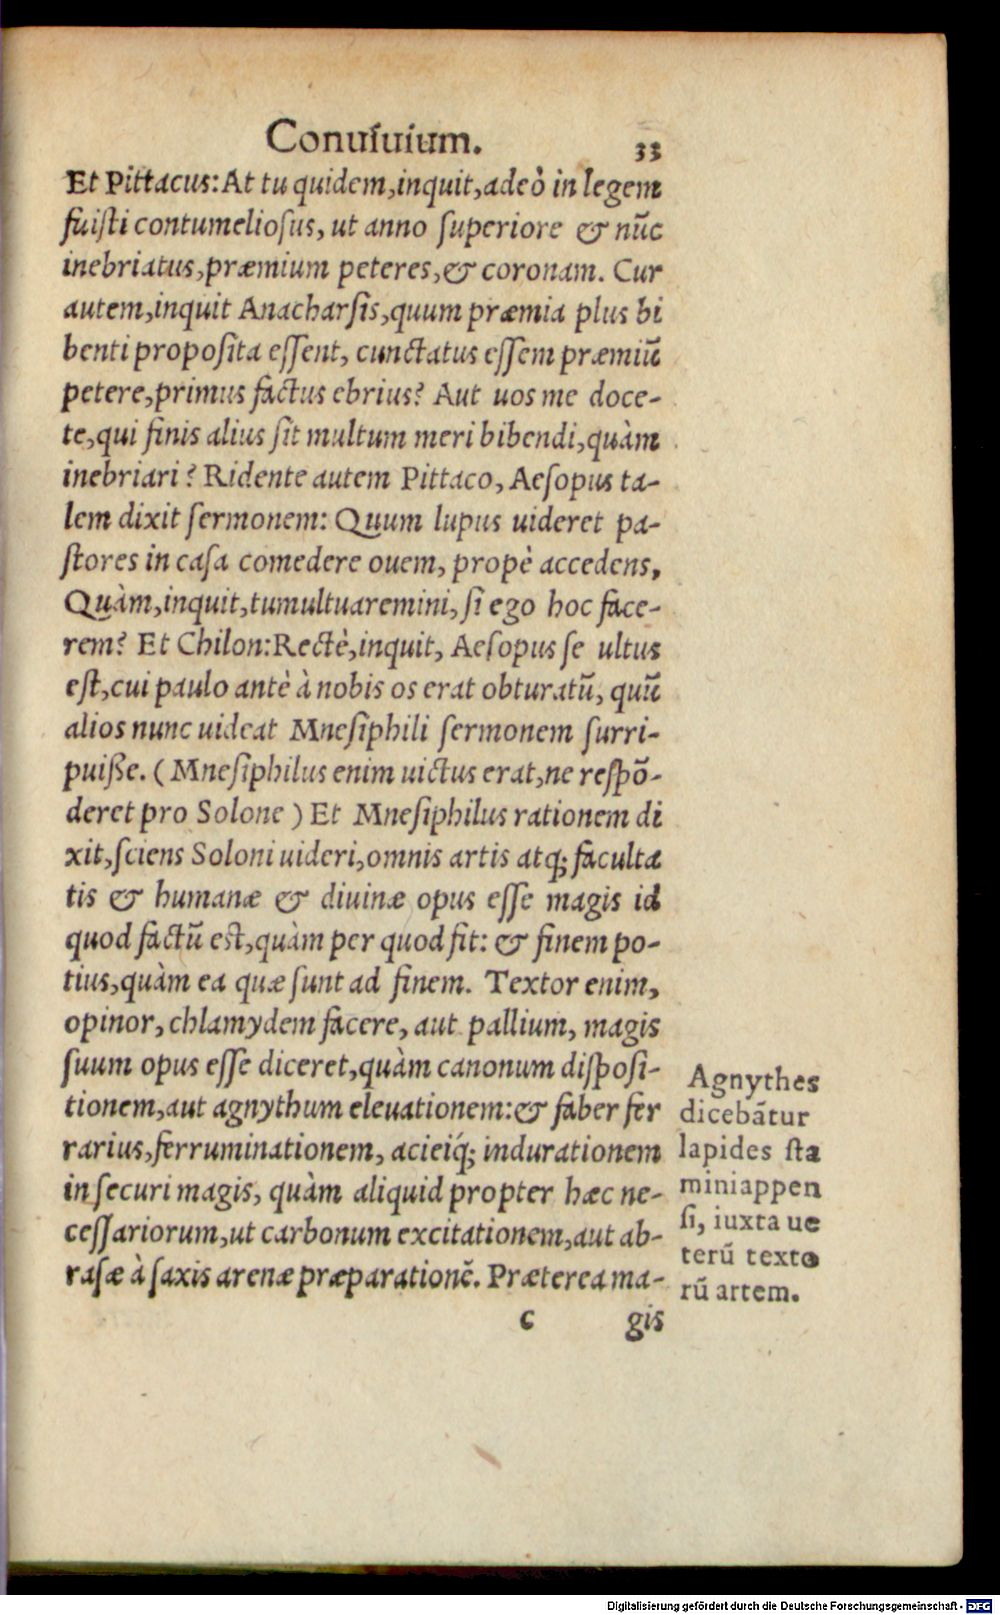 Conuiuium. 33
Et Pittacus: At tu quidem, inquit, adeò in legem
fuisti contumeliosus, ut anno superiore & nūc
inebriatus, præmium peteres, & coronam. Cur
autem, inquit Anacharsis, quum præmia plus bi
benti proposita essent, cunctatus essem præmiū
petere, primus factus ebrius? Aut uos me doce-
te, qui finis alius sit multum meri bibendi, quàm
inebriari? Ridente autem Pittaco, Aesopus ta-
lem dixit sermonem: Quum lupus uideret pa-
stores in casa comedere ouem, propè accedens,
Quàm, inquit, tumultuaremini, si ego hoc face-
rem? Et Chilon: Rectè, inquit, Aesopus se ultus
est, cui paulo antè à nobis os erat obturatū, quū
alios nunc uideat Mnesiphili sermonem surri-
puiße. (Mnesiphilus enim uictus erat, ne respō-
deret pro Solone) Et Mnesiphilus rationem di
xit, sciens Soloni uideri, omnis artis atq; faculta
tis & humanæ & diuinæ opus esse magis id
quod factū est, quàm per quod fit: & finem po-
tius, quàm ea quæ sunt ad finem. Textor enim,
opinor, chlamydem facere, aut pallium, magis
suum opus esse diceret, quàm canonum disposi-
tionem, aut agnythum eleuationem: & faber fer
rarius, ferruminationem, acieiq́; indurationem
in securi magis, quàm aliquid propter hæc ne-
cessariorum, ut carbonum excitationem, aut ab-
rasæ à saxis arenæ præparationē. Præterea ma-
c gis
Agnythes
dicebātur
lapides sta
miniappen
si, iuxta ue
terū texto
rū artem.
Digitalisierung gefördert durch die Deutsche Forschungsgemeinschaft - DFG